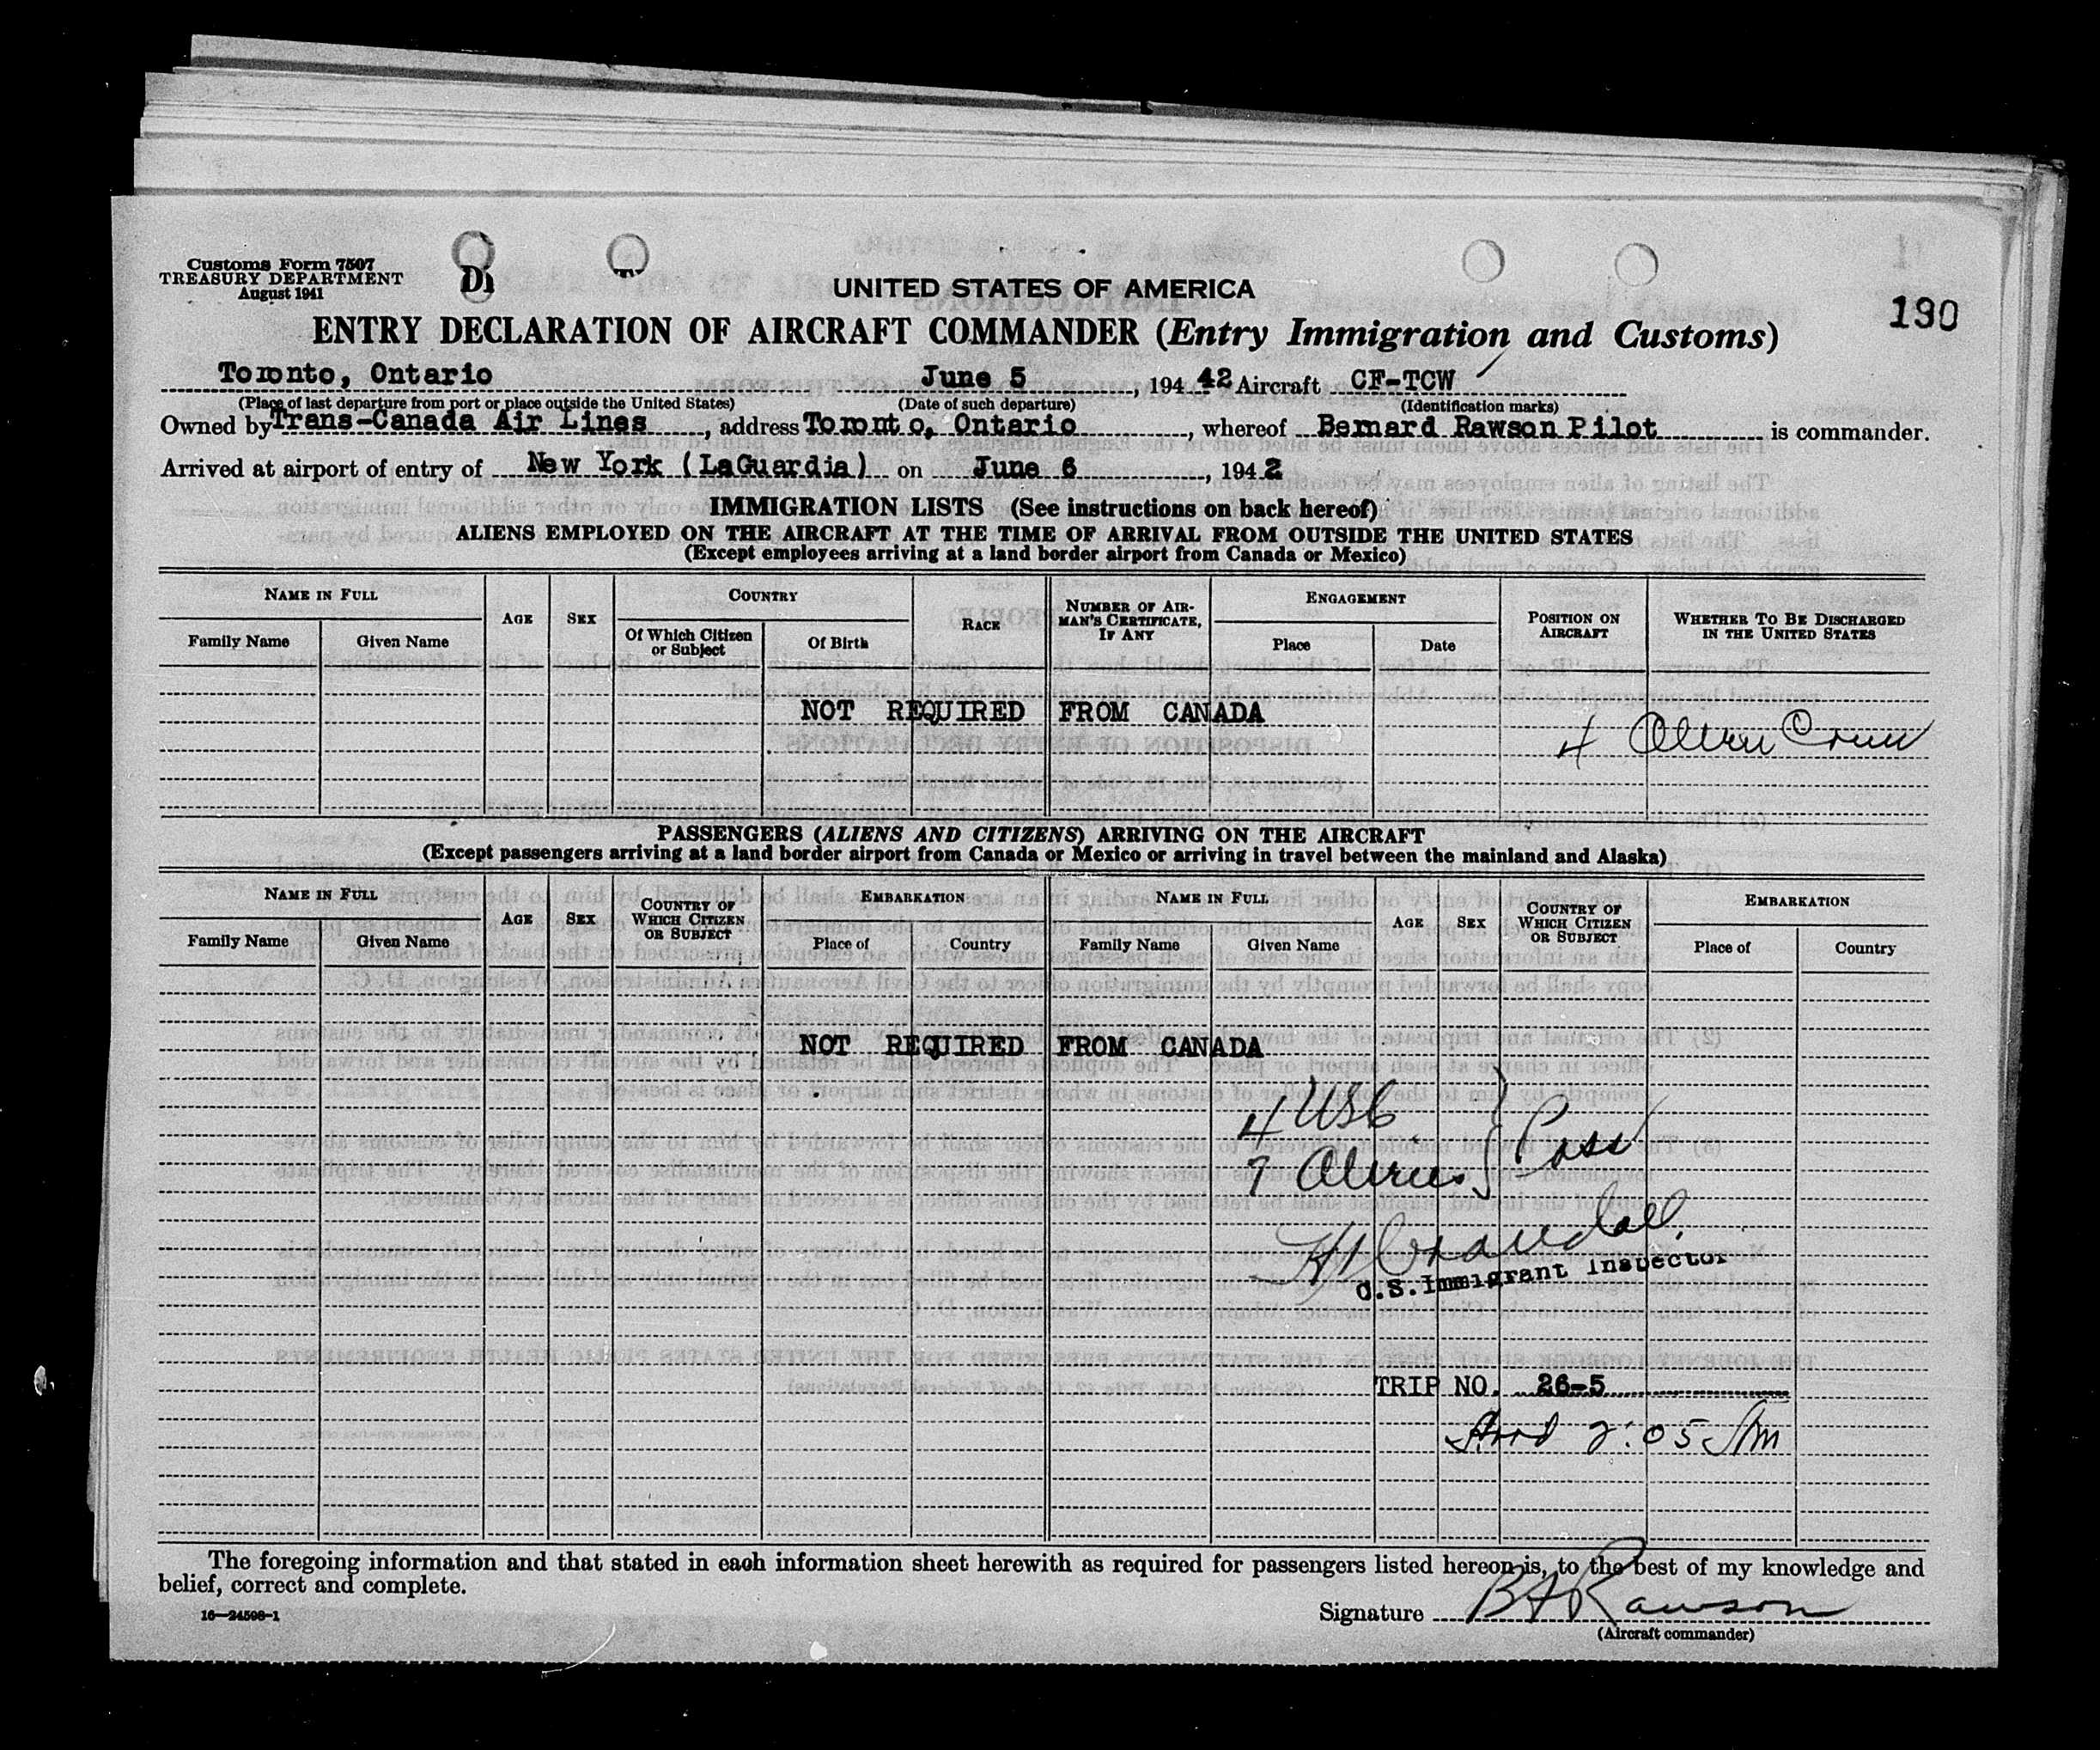 Customs Form 7507
TREASURY DEPARTMENT
August 1941
Di
UNITED STATES OF AMERICA
190
ENTRY DECLARATION OF AIRCRAFT COMMANDER (Entry Immigration and Customs)
Toronto, Ontario June 5, 194 42 Aircraft CF-TCW
(Place of last departure from port or place outside the United States) (Date of such departure) (Identification marks)
Owned by Trans-Canada Air Lines, address Toronto, Ontario, whereof Bernard Rawson Pilot is commander.
Arrived at airport of entry of New York (LaGuardia) on June 6, 1942
IMMIGRATION LISTS (See instructions on back hereof)
ALIENS EMPLOYED ON THE AIRCRAFT AT THE TIME OF ARRIVAL FROM OUTSIDE THE UNITED STATES
(Except employees arriving at a land border airport from Canada or Mexico)
NAME IN FULL AGE SEX COUNTRY RACE NUMBER OF AIRMAN'S CERTIFICATE, IF ANY ENGAGEMENT POSITION ON AIRCRAFT WHETHER TO BE DISCHARGED IN THE UNITED STATES
Family Name Given Name Of Which Citizen or Subject Of Birth Place Date
NOT REQUIRED FROM CANADA
4 Alien Crew
PASSENGERS (ALIENS AND CITIZENS) ARRIVING ON THE AIRCRAFT
(Except passengers arriving at a land border airport from Canada or Mexico or arriving in travel between the mainland and Alaska)
NAME IN FULL AGE SEX COUNTRY OF WHICH CITIZEN OR SUBJECT EMBARKATION NAME IN FULL AGE SEX COUNTRY OF WHICH CITIZEN OR SUBJECT EMBARKATION
Family Name Given Name Place of Country Family Name Given Name Place of Country
NOT REQUIRED FROM CANADA
4 USC
7 Aliens } Pass
Crandall
U.S. Immigrant Inspector
TRIP NO. 26-5
Arrd 2:05 AM
The foregoing information and that stated in each information sheet herewith as required for passengers listed hereon is, to the best of my knowledge and
belief, correct and complete.
16—24598-1
Signature B A Rawson
(Aircraft commander)